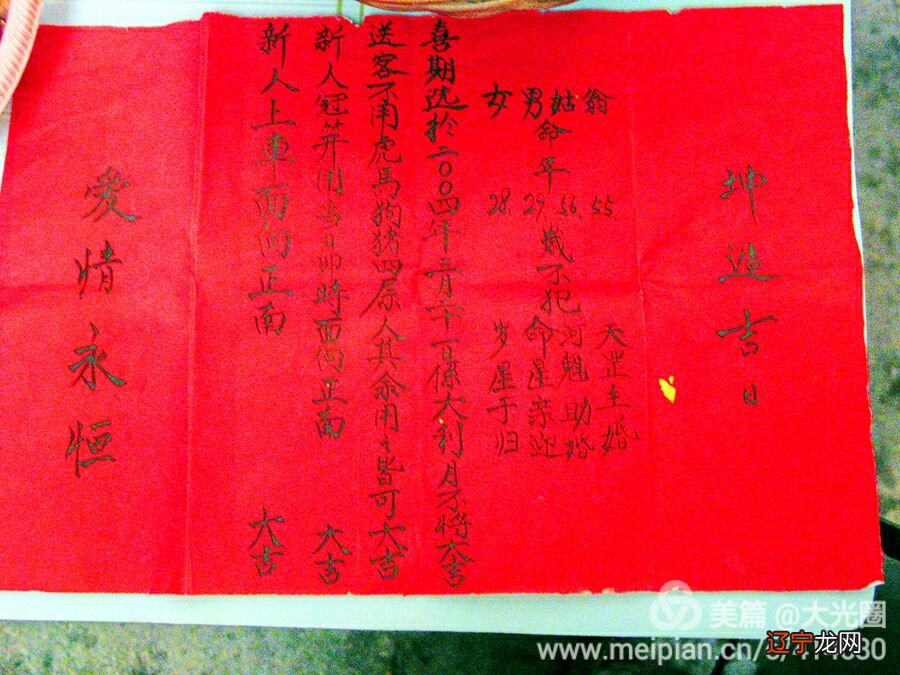 坤造吉日
翁 55. 天罡主婚
姑 56. 河魁助婚
命年 歲不犯
男 29. 命星亲迎
女 28. 岁星于归
喜期选於二00四年三月二十一日係大利月不將大吉
送客不用虎馬狗猪四属人其余用之皆可大吉
新人冠笄用当日卯時面向正南 大吉
新人上車面向正南 大吉
愛情永恒
美篇 @大光圈
www.meipian.cn/
辽宁龙网